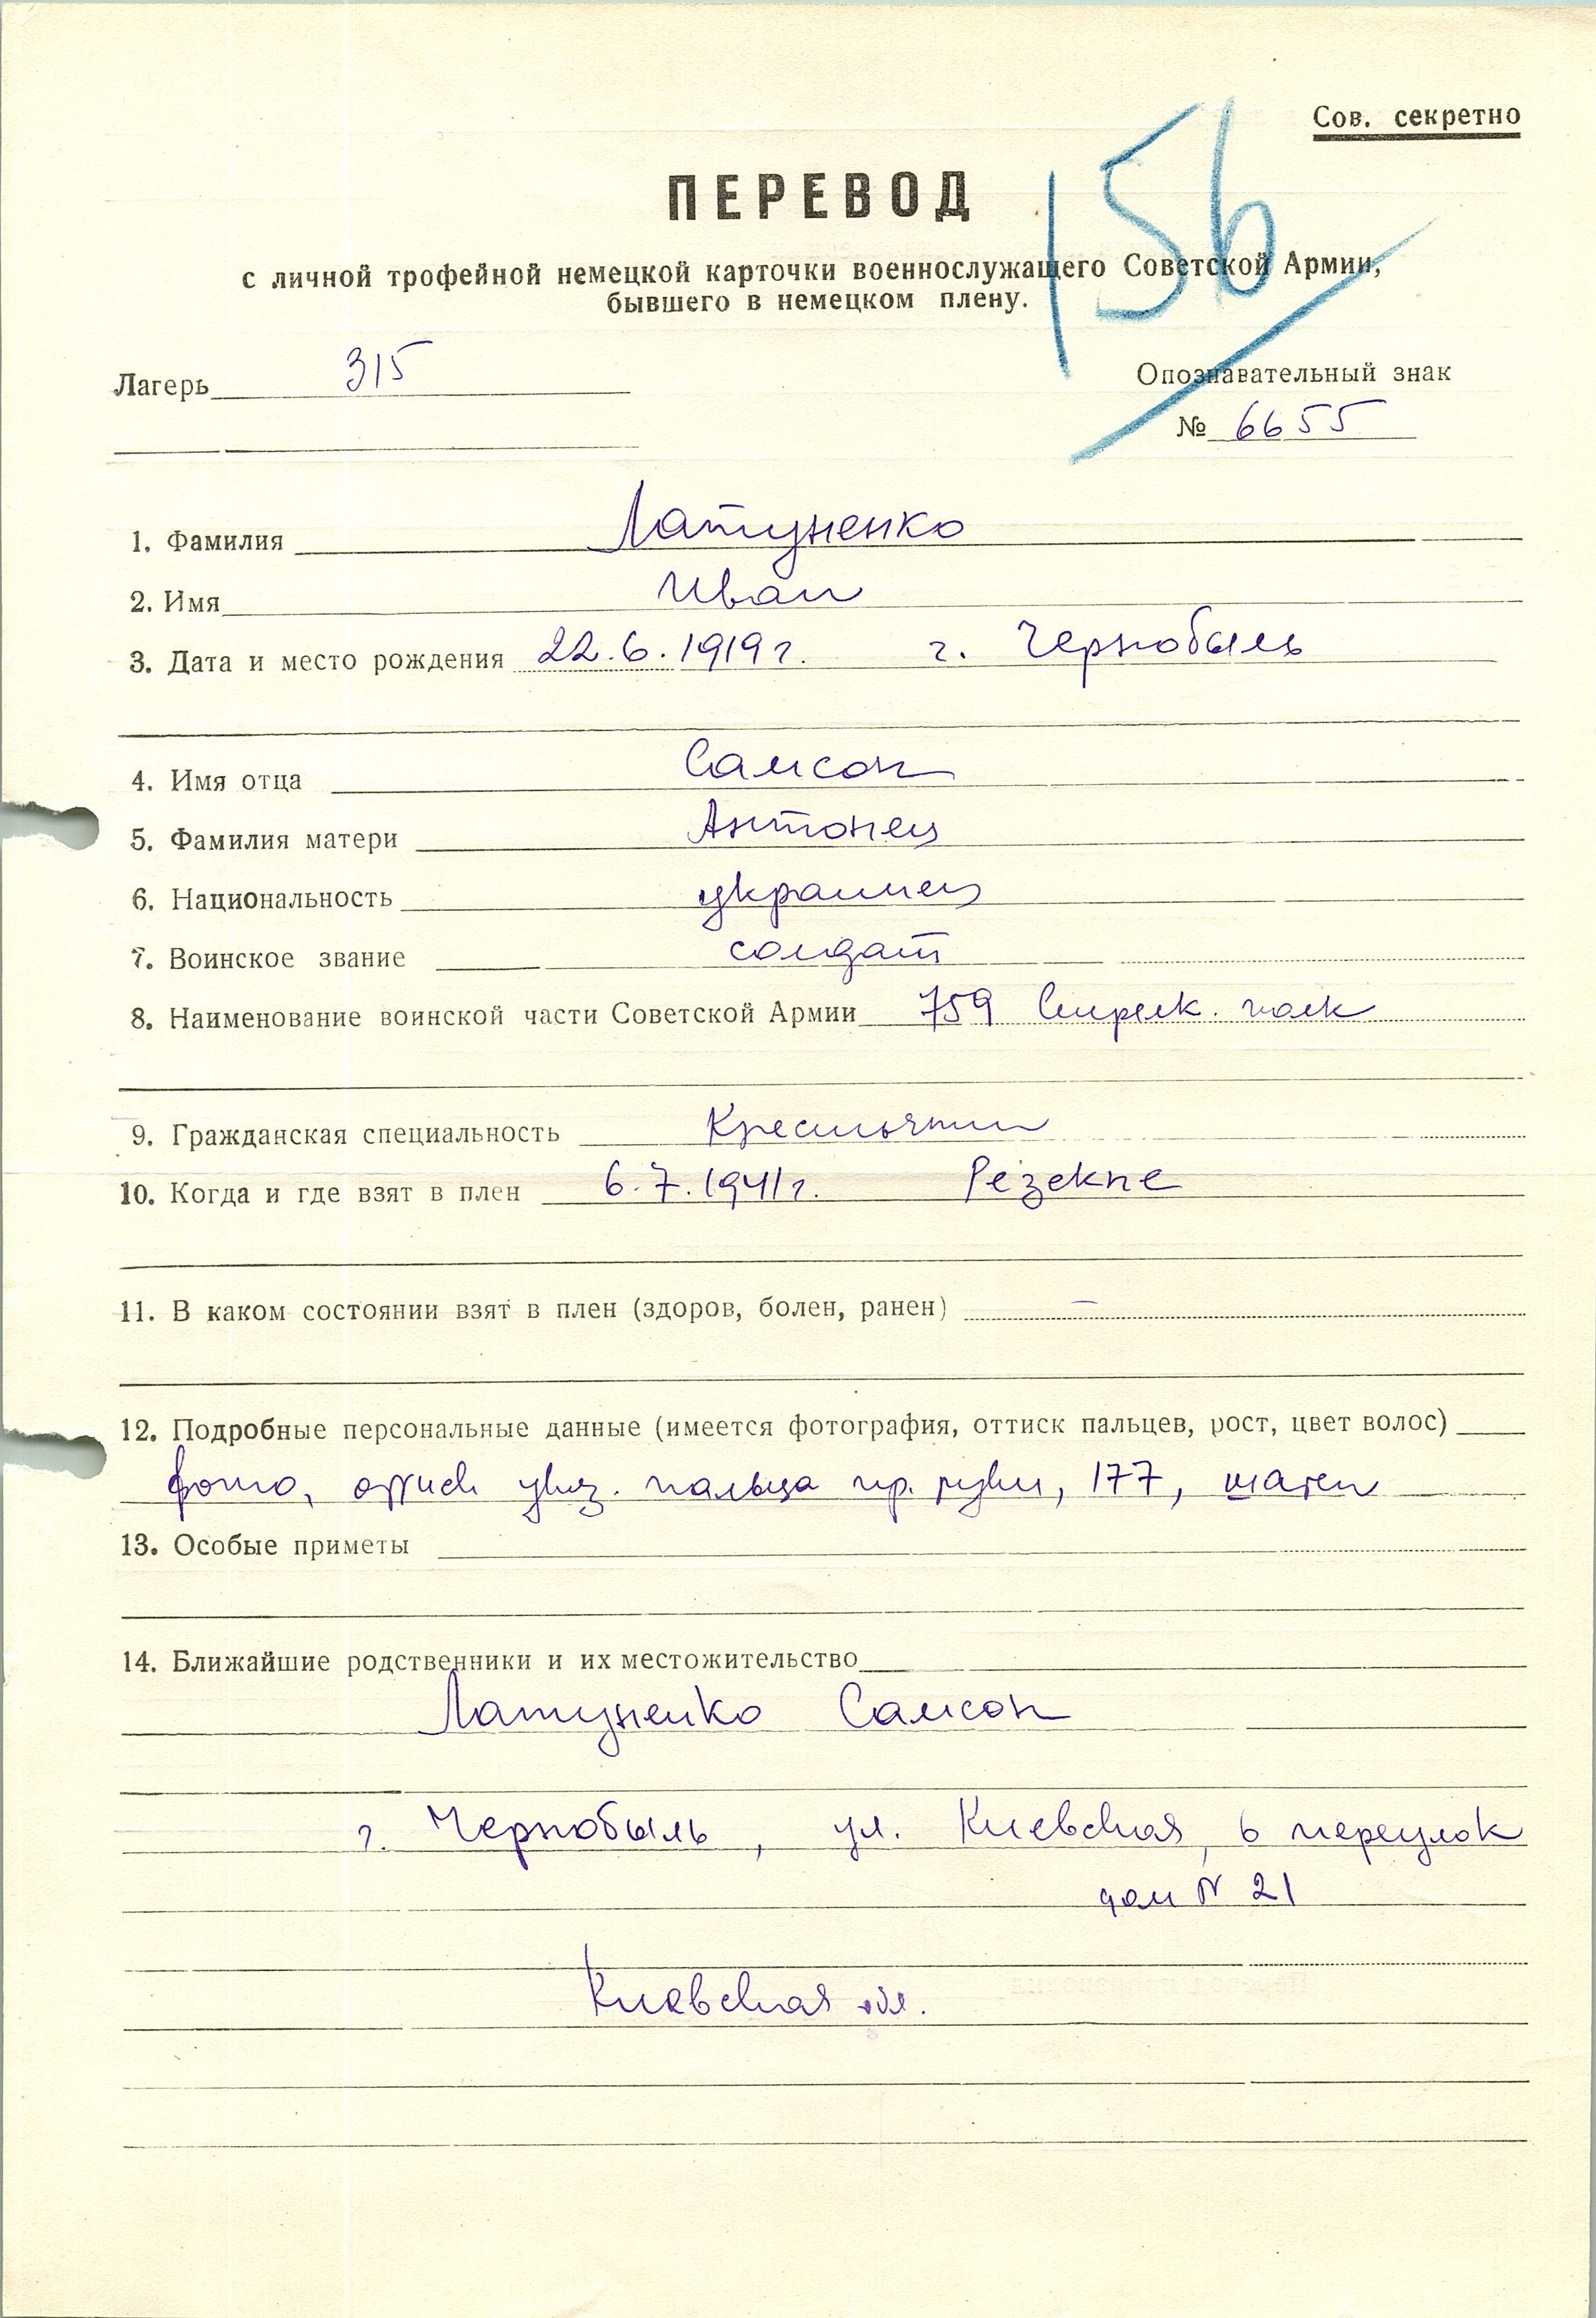 Сов. секретно
156
ПЕРЕВОД
с личной трофейной немецкой карточки военнослужащего Советской Армии,
бывшего в немецком плену.
Лагерь 315
Опознавательный знак
№ 6655
1. Фамилия Латуненко
2. Имя Иван
3. Дата и место рождения 22.6.1919 г. г. Чернобыль
4. Имя отца Самсон
5. Фамилия матери Антонец
6. Национальность украинец
7. Воинское звание солдат
8. Наименование воинской части Советской Армии 759 Стрелк. полк
9. Гражданская специальность Крестьянин
10. Когда и где взят в плен 6.7.1941 г. Резекне
11. В каком состоянии взят в плен (здоров, болен, ранен) –
12. Подробные персональные данные (имеется фотография, оттиск пальцев, рост, цвет волос)
фото, оттиск указ. пальца пр. руки, 177, шатен
13. Особые приметы
14. Ближайшие родственники и их местожительство
Латуненко Самсон
г. Чернобыль, ул. Киевская, 6 переулок
дом № 21
Киевская обл.